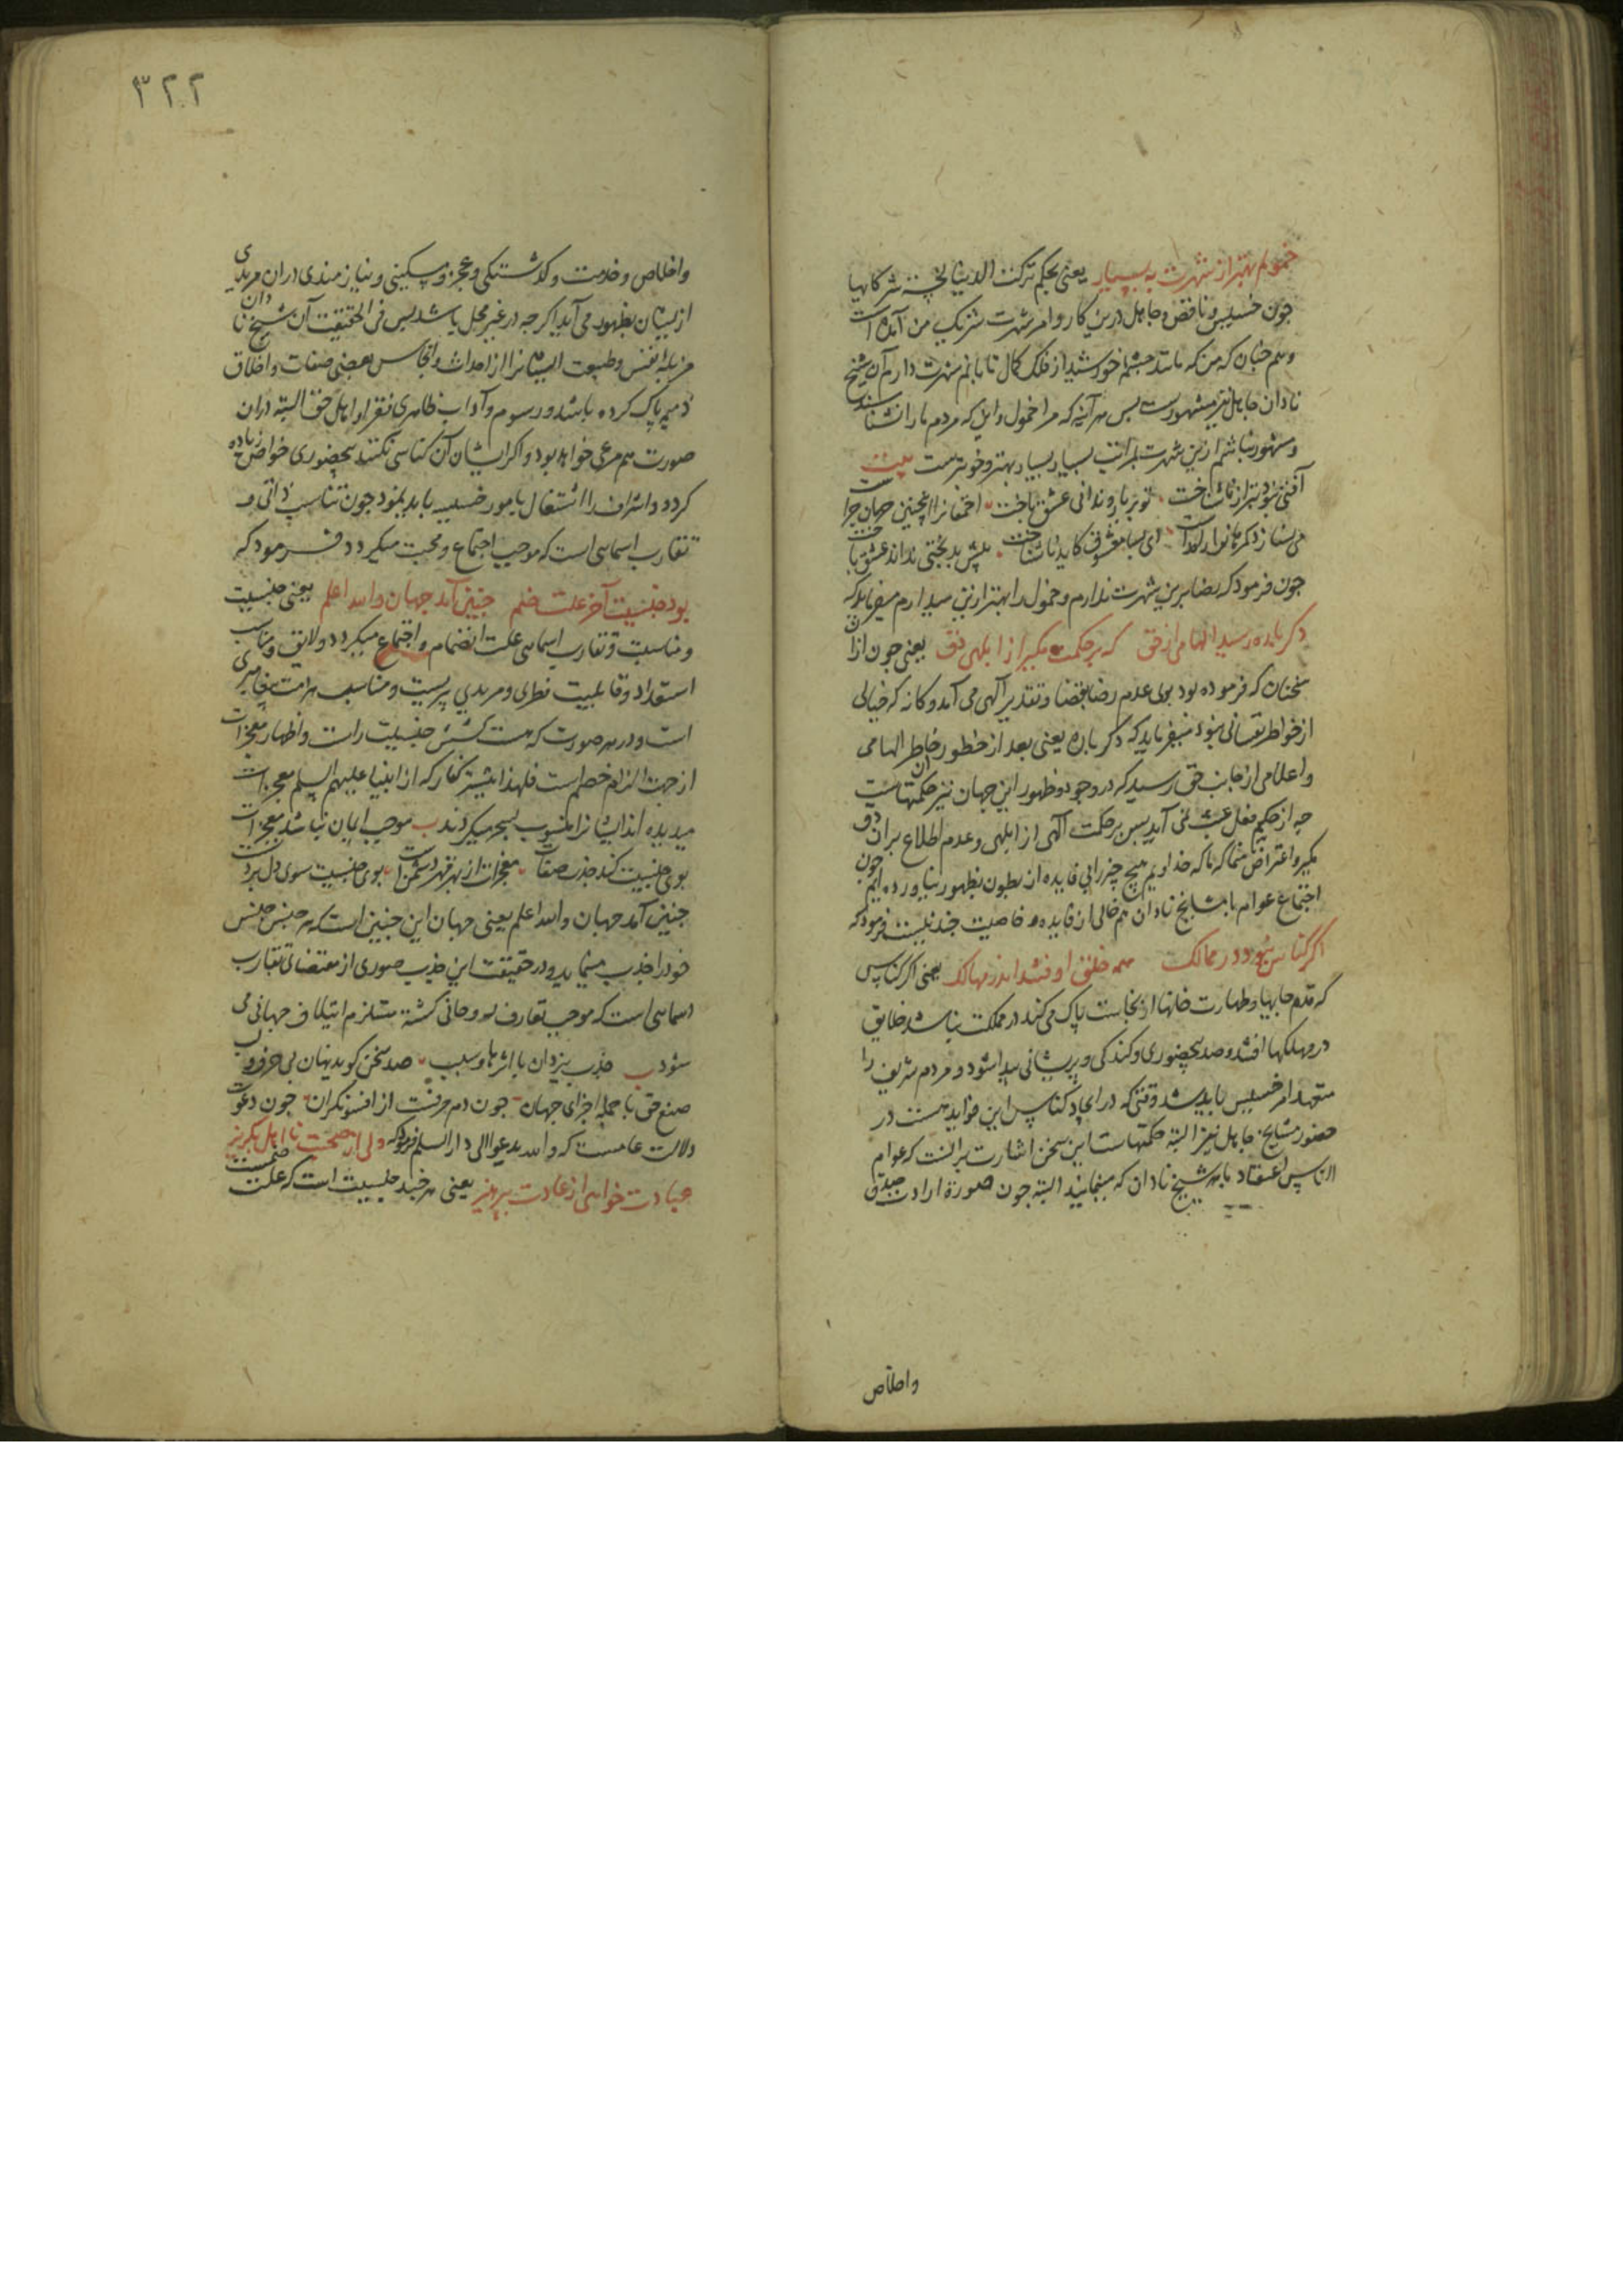 خمولم بهتر از شهرت به بسیار یعنی بحکم ترکت الدنیا لخسة شرکائها
چون خسیس و ناقص و جاهل درین کار و امر شهرت شریک من آمده است
و هم چنان که من که مانند چشم خورشید از فلک کمال تابانم شهرت دارم آن شیخ
نادان جاهل نیز مشهورست پس هر آینه که مرا خمول و این که مردم ما را نشناسند
و مشهور نباشم ازین شهرت بمراتب بسیار بسیار بهتر و خوبترست بیت
آفتی نبود بتر از ناشناخت تو بر یار و ندانی عشق باخت احمقانرا اینچنین حرمان چرا
می سازد کمرهانرا راست ای بسا معشوق کاید ناشناخت پیش بدبختی نداند عشق باخت
چون فرمود که رضا برین شهرت ندارم و خمول را بهتر ازین میدارم میفرماید که
دگر باره رسید الهامی از حق که بر حکمت مگیر از ابلهی دق یعنی چون ازان
سخنان که فرموده بود بوی عدم رضا بقضا و تقدیر آلهی می آمد و کانه که خیالی
از خواطر نفسانی بود میفرماید که دگر باره یعنی بعد از خطور خاطر الهامی
و اعلامی از جانب حق رسید که در وجود و ظهور این جهان نیز حکمتهاست
چه از حکیم فعل عبث نمی آید پس بر حکمت آلهی از ابلهی و عدم اطلاع بران دق
مگیر و اعتراض منما که ما که خداویم هیچ چیز را بی فایده از بطون بظهور نیاورده ایم چون
اجتماع عوام با مشایخ نادان هم خالی از فایده و خاصیت چند نیست فرمود که
اگر کناس نبود در ممالک همه خلق اوفتند اندر مهالک یعنی اگر کناس
که قدم جایها و طهارت خانها از نجاست پاک می کند در مملکت نباشد خلایق
در مهلکها افتند و صد بیحضوری و گندگی و پریشانی پیدا شود و مردم شریف را
متعهد امر خسیس باید شد وقتی که در ایجاد کناس این فواید هست در
حضور مشایخ جاهل نیز البته حکمتهاست این سخن اشارت بر آنست که عوام
الناس اعتقاد بان شیخ نادان که مینمایند البته چون صورة ارادت صدق
واخلاص
۳۲۲
واخلاص و خدمت و کذشتگی و عجز و مسکینی و نیازمندی دران مریدی
ازیشان بظهور می آید اگر چه در غیر محل باشد پس فی الحقیقت آن شیخ نادان
مزبله نفس و طبیعت ایشانرا از احداث و انجاس بعضی صفات و اخلاق
ذمیمه پاک کرده باشد و رسوم و آداب ظاهری فقر او اهل حق البته دران
صورت هم مرعی خواهد بود و اگر ایشان آن کناسی نکنند بیحضوری خواص زیاده
گردد و اشراف را اشتغال بامور خسیسه باید نمود چون تناسب ذاتی و
تقارب اسمایی است که موجب اجتماع و محبت میگردد فرمود که
بود جنسیت آخر علت ضم چنین آمد جهان والله اعلم یعنی جنسیت
و مناسبت و تقارب اسمایی علت انضمام و اجتماع میگردد و لایق و مناسب
استعداد و قابلیت فطری و مریدی پیریست و مناسب هر امت پیغامبری
است و در هر صورت که هست کشش جنسیت راست و اظهار معجزات
از جهت الزام خصم است فلهذا بیشتر کفار که از انبیا علیهم السلم معجزات
میدیده اند ایشانرا منسوب بسحر میکردند ب موجب ایمان نباشد معجزات
بوی جنسیت کند جذب صفات معجزات از بهر قهر دشمنست بوی جنسیت سوی دل بردنست
چنین آمد جهان والله اعلم یعنی جهان این چنین است که هر جنس جنس
خود را جذب مینماید و در حقیقت این جذب صوری از مقتضای تقارب
اسمایی است که موجب تعارف روحانی گشته مستلزم ایتلاف جهانی می
شود ب جذب یزدان با اثرها و سبب صد سخن گوید نهان بی حرف و لب
صنع حق با جمله اجزای جهان چون دم حرفست از افسونگران چون دعوت
دلالت عامست که والله یدعوا الی دار السلم فرمود که ولی از صحبت نا اهل بگریز
عبادت خواهی از عادت بپرهیز یعنی هر چند جنسیت است که علت ضمست